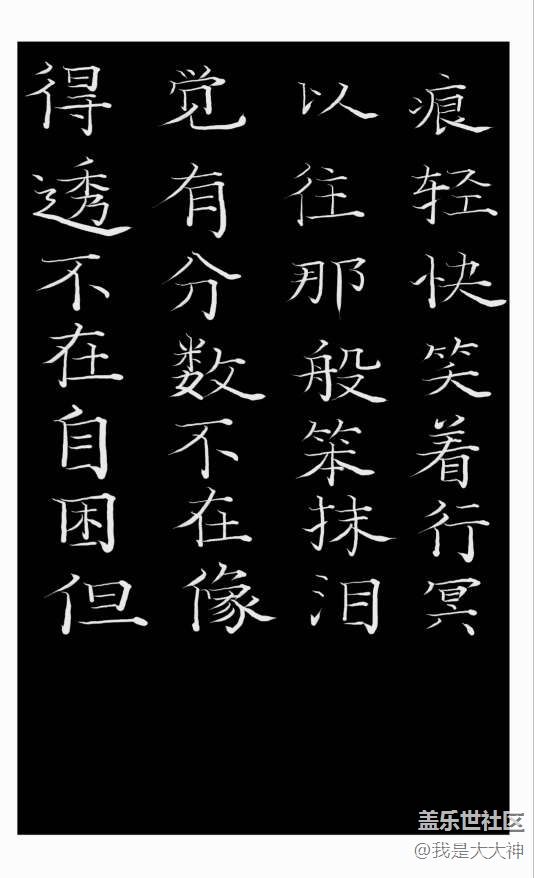 痕轻快笑着行冥
以往那般笨抹泪
觉有分数不在像
得透不在自困但
盖乐世社区
@我是大大神